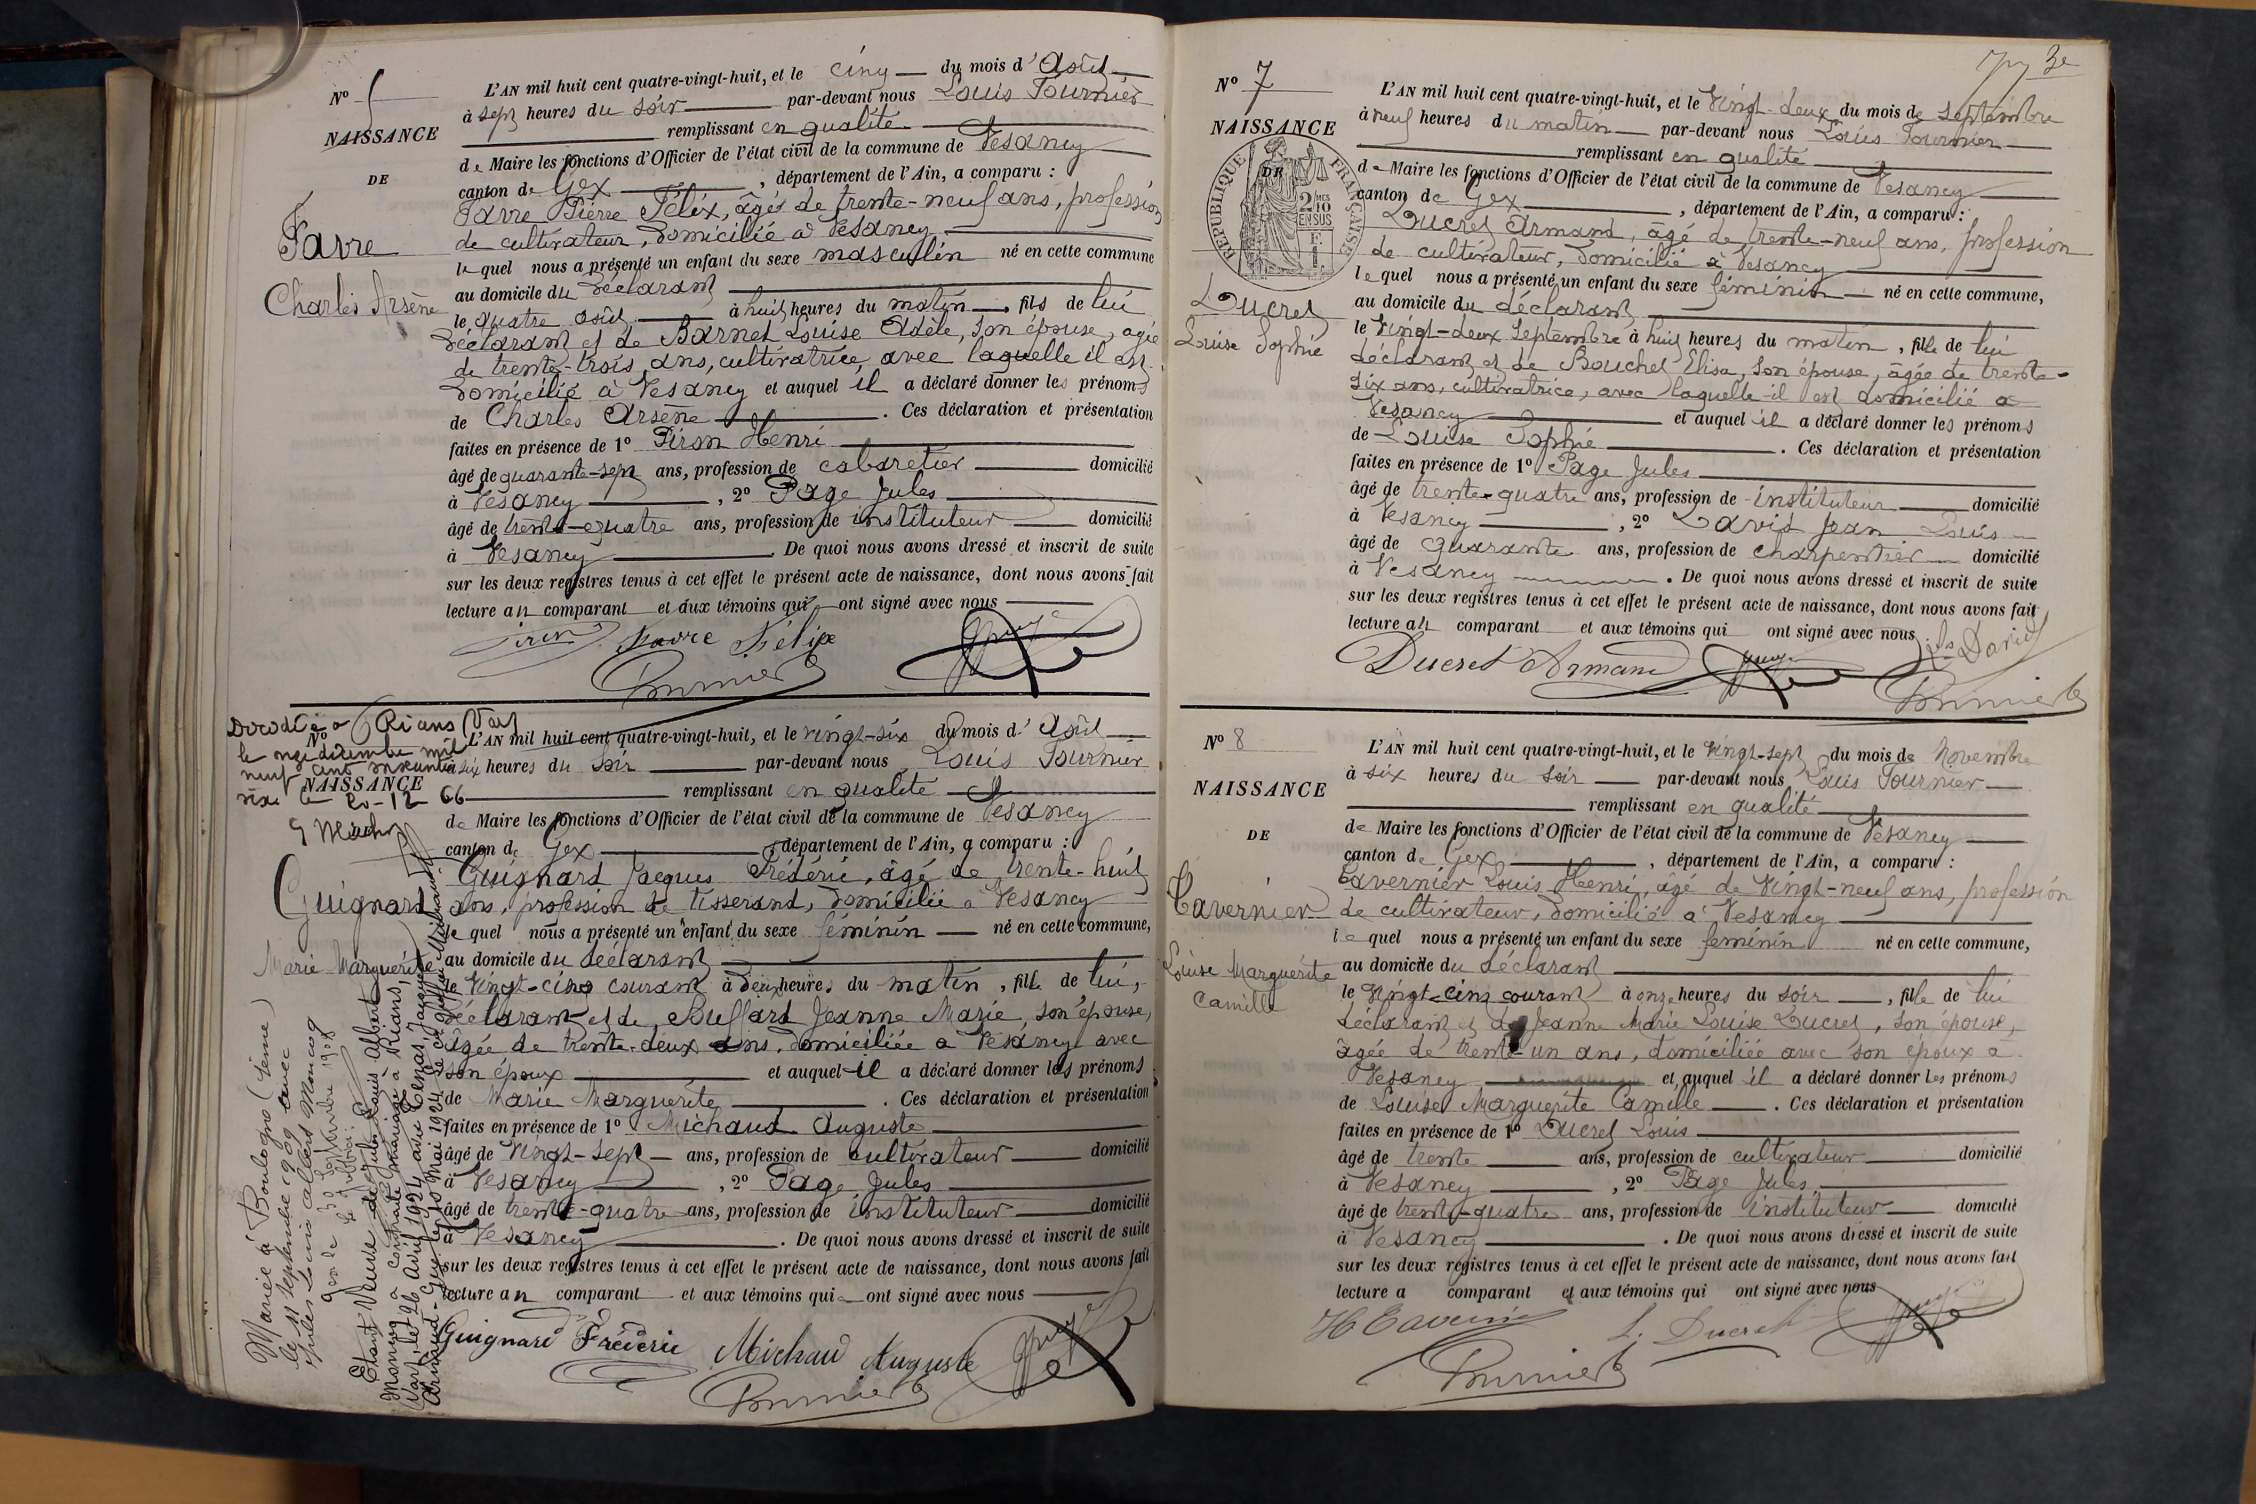 N° 5
NAISSANCE
DE
Favre
Charles Arsène
L'AN mil huit cent quatre-vingt-huit, et le cinq du mois d'Août
à sept heures du soir par-devant nous Louis Fournier
remplissant en qualité
de Maire les fonctions d'Officier de l'état civil de la commune de Vesancy
canton de Gex, département de l'Ain, a comparu :
Favre Pierre Félix, âgé de trente-neuf ans, profession
de cultivateur, domicilié à Vesancy
lequel nous a présenté un enfant du sexe masculin né en cette commune
au domicile du déclarant
le quatre août à huit heures du matin, fils de lui
déclarant et de Barnet Louise Adèle, son épouse, agée
de trente-trois ans, cultivatrice, avec laquelle il est
domicilié à Vesancy et auquel il a déclaré donner les prénoms
de Charles Arsène. Ces déclaration et présentation
faites en présence de 1° Piron Henri
âgé de quarante-sept ans, profession de cabaretier domicilié
à Vesancy, 2° Page Jules
âgé de trente-quatre ans, profession de instituteur domicilié
à Vesancy. De quoi nous avons dressé et inscrit de suite
sur les deux registres tenus à cet effet le présent acte de naissance, dont nous avons fait
lecture au comparant et aux témoins qui ont signé avec nous
Piron Favre Félix Page
Fournier
Décédée à Rians (Var)
le onze décembre mil
neuf cent soixante
six le 20-12-66
N°
NAISSANCE
Guignard
Marie Marguerite
Mariée à Boulogne (Seine)
le 11 septembre 1909 avec
Jules Louis Albert Moncog
Etant Veuve de Jules Louis Albert
Moncog a contracté mariage à Rians,
(Var), le 26 Avril 1924 avec Tenas Jacques
L'AN mil huit cent quatre-vingt-huit, et le vingt-six du mois d'Août
à six heures du soir par-devant nous Louis Fournier
remplissant en qualité
de Maire les fonctions d'Officier de l'état civil de la commune de Vesancy
canton de Gex, département de l'Ain, a comparu :
Guignard Jacques Frédéric, âgé de trente-huit
ans, profession de tisserand, domicilié à Vesancy
lequel nous a présenté un enfant du sexe féminin né en cette commune,
au domicile du déclarant
le vingt-cinq courant à deux heures du matin, fille de lui,
déclarant et de Bouffard Jeanne Marie, son épouse,
âgée de trente-deux ans, domiciliée à Vesancy avec
son époux et auquel il a déclaré donner les prénoms
de Marie Marguerite. Ces déclaration et présentation
faites en présence de 1° Michaud Auguste
âgé de vingt-sept ans, profession de cultivateur domicilié
à Vesancy, 2° Page Jules
âgé de trente-quatre ans, profession de instituteur domicilié
à Vesancy. De quoi nous avons dressé et inscrit de suite
sur les deux registres tenus à cet effet le présent acte de naissance, dont nous avons fait
lecture au comparant et aux témoins qui ont signé avec nous
Guignard Frédéric Michaud Auguste Page
Fournier
3e
N° 7
NAISSANCE
DE
RÉPUBLIQUE FRANÇAISE
2/10 EN SUS
Ducret
Louise Sophie
L'AN mil huit cent quatre-vingt-huit, et le vingt-deux du mois de septembre
à neuf heures du matin par-devant nous Louis Fournier
remplissant en qualité
de Maire les fonctions d'Officier de l'état civil de la commune de Vesancy
canton de Gex, département de l'Ain, a comparu :
Ducret Armand, âgé de trente-neuf ans, profession
de cultivateur, domicilié à Vesancy
lequel nous a présenté un enfant du sexe féminin né en cette commune,
au domicile du déclarant
le vingt-deux septembre à huit heures du matin, fille de lui
déclarant et de Bouchet Elisa, son épouse, âgée de trente-
six ans, cultivatrice, avec laquelle il est domicilié à
Vesancy et auquel il a déclaré donner les prénoms
de Louise Sophie. Ces déclaration et présentation
faites en présence de 1° Page Jules
âgé de trente-quatre ans, profession de instituteur domicilié
à Vesancy, 2° David Jean Louis
âgé de quarante ans, profession de charpentier domicilié
à Vesancy. De quoi nous avons dressé et inscrit de suite
sur les deux registres tenus à cet effet le présent acte de naissance, dont nous avons fait
lecture au comparant et aux témoins qui ont signé avec nous
Ducret Armand Page David
Fournier
N° 8
NAISSANCE
DE
Tavernier
Louise Marguerite
Camille
L'AN mil huit cent quatre-vingt-huit, et le vingt-sept du mois de Novembre
à six heures du soir par-devant nous Louis Fournier
remplissant en qualité
de Maire les fonctions d'Officier de l'état civil de la commune de Vesancy
canton de Gex, département de l'Ain, a comparu :
Tavernier Louis Henri, âgé de vingt-neuf ans, profession
de cultivateur, domicilié à Vesancy
lequel nous a présenté un enfant du sexe féminin né en cette commune,
au domicile du déclarant
le vingt-cinq courant à onze heures du soir, fille de lui
déclarant et de Jeanne Marie Louise Ducret, son épouse,
âgée de trente-un ans, domiciliée avec son époux à
Vesancy et auquel il a déclaré donner les prénoms
de Louise Marguerite Camille. Ces déclaration et présentation
faites en présence de 1° Ducret Louis
âgé de trente ans, profession de cultivateur domicilié
à Vesancy, 2° Page Jules
âgé de trente-quatre ans, profession de instituteur domicilié
à Vesancy. De quoi nous avons dressé et inscrit de suite
sur les deux registres tenus à cet effet le présent acte de naissance, dont nous avons fait
lecture a comparant et aux témoins qui ont signé avec nous
H Tavernier L. Ducret Page
Fournier